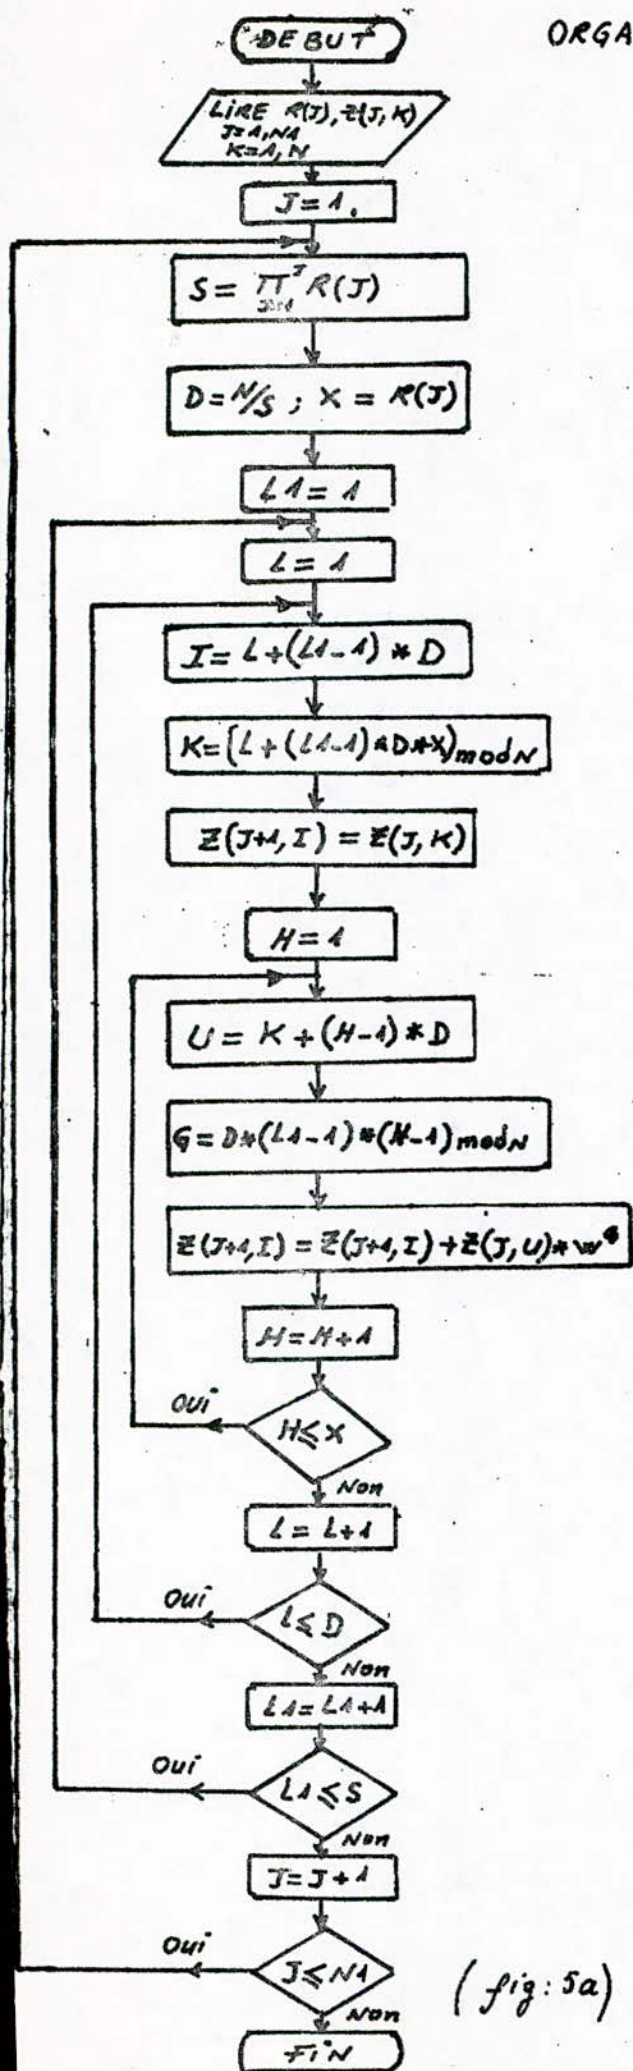 DEBUT
ORGA
LIRE R(J), Z(J, K)
J=1, N1
K=1, N
J = 1.
S = ∏ᴶ R(J)
J=1
D = N/S ; X = R(J)
L1 = 1
L = 1
I = L+(L1-1) * D
K=(L+(L1-1)*D*X)modN
Z(J+1, I) = Z(J, K)
H = 1
U = K + (H-1) * D
G = D*(L1-1)*(H-1)modN
Z(J+1,I) = Z(J+1,I) + Z(J,U)*W^G
H = H+1
H ≤ X
Oui
Non
L = L+1
L ≤ D
Oui
Non
L1 = L1+1
L1 ≤ S
Oui
Non
J = J + 1
J ≤ N1
Oui
Non
(fig: 5a)
FIN